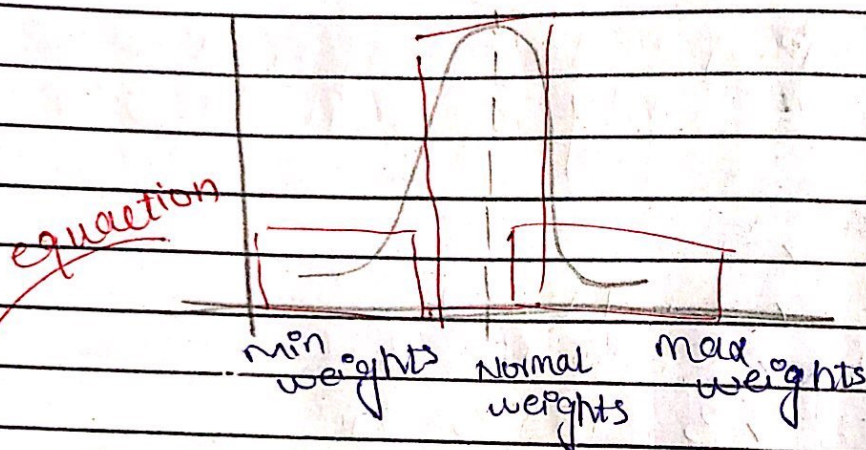 equaetion
min
weights
Normal
weights
max
weights